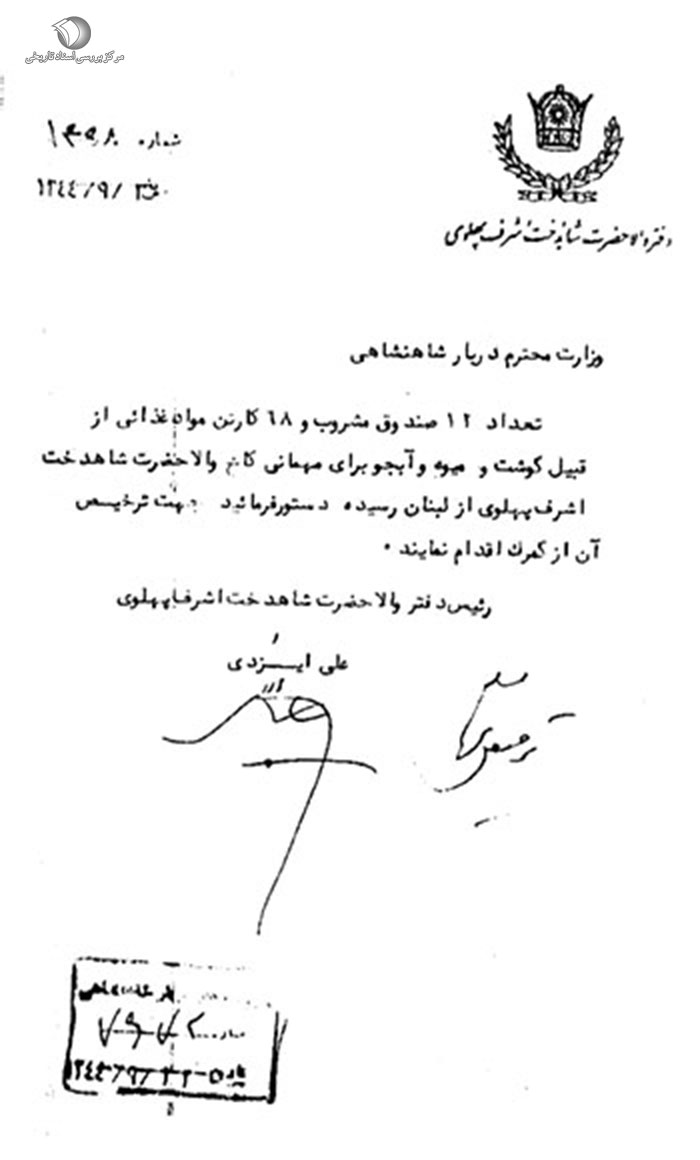 مرکز بررسی اسناد تاریخی
شماره
دفتر والاحضرت شاهدخت اشرف پهلوی
وزارت محترم دربار شاهنشاهی
تعداد ۱۲ صندوق مشروب و ۶۸ کارتن مواد غذائی از
قبیل گوشت و میوه و آبجو برای مهمانی کاخ والاحضرت شاهدخت
اشرف پهلوی از لبنان رسیده دستور فرمائید جهت ترخیص
آن از گمرك اقدام نمایند ۰
رئیس دفتر والاحضرت شاهدخت اشرف پهلوی
علی ایزدی